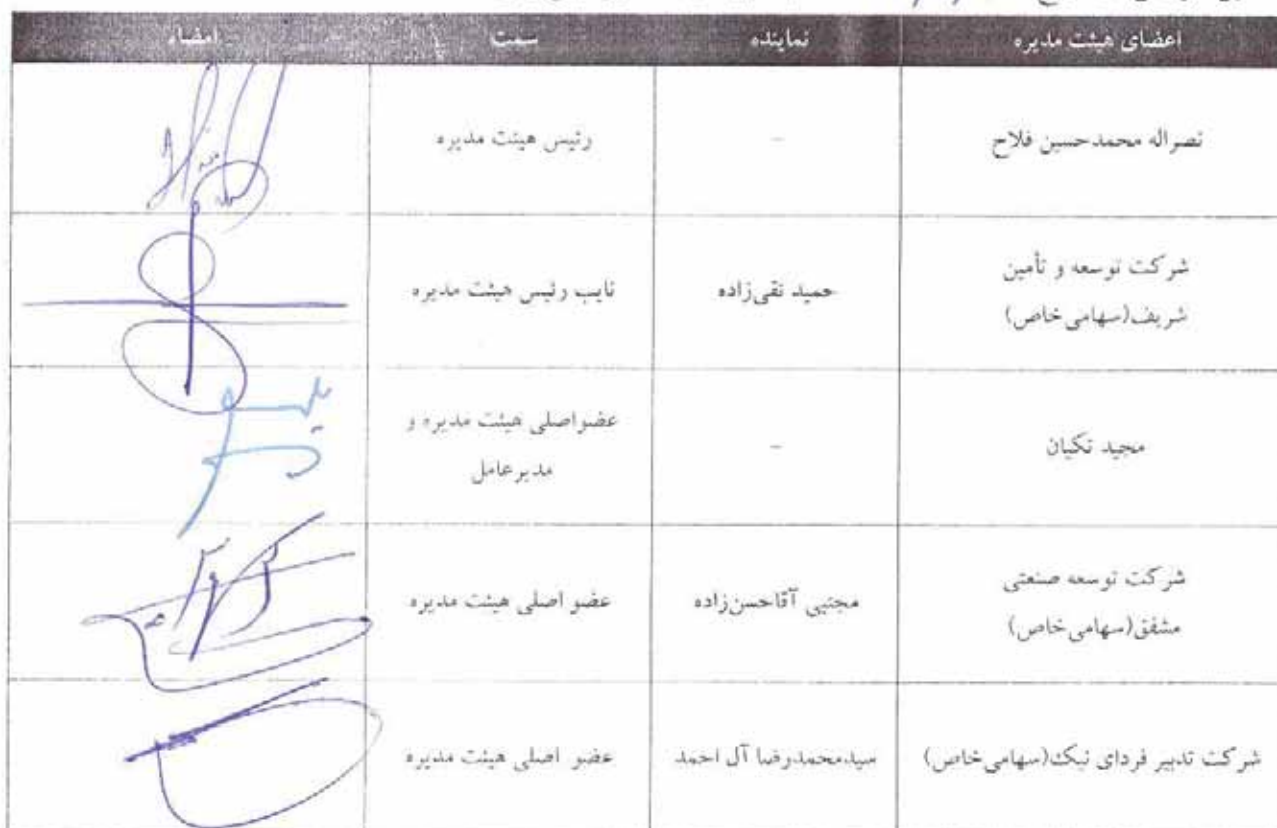 اعضای هیئت مدیره	نماینده	سمت	امضاء
نصراله محمدحسین فلاح	-	رئیس هیئت مدیره
شرکت توسعه و تأمین
شریف(سهامی خاص)	حمید نقی‌زاده	نایب رئیس هیئت مدیره
مجید تکیان	-	عضواصلی هیئت مدیره و
مدیرعامل
شرکت توسعه صنعتی
مشفق(سهامی خاص)	مجتبی آقاحسن‌زاده	عضو اصلی هیئت مدیره
شرکت تدبیر فردای نیک(سهامی خاص)	سیدمحمدرضا آل احمد	عضو اصلی هیئت مدیره